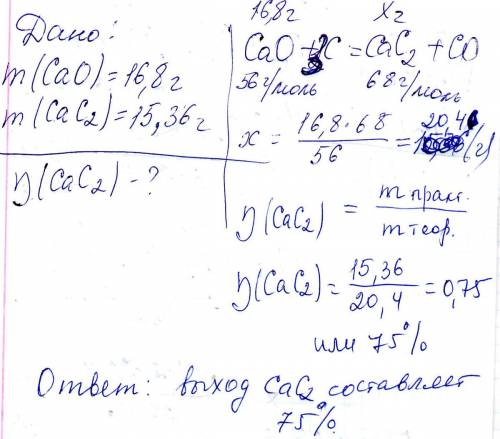 Дано:
m(CaO)=16,8г
m(CaC2)=15,36г
η(CaC2)-?
16,8г xг
CaO+3C=CaC2+CO
56г/моль 68г/моль
x = 16,8·68 / 56 = 20,4 (г)
η(CaC2) = m практ. / m теор.
η(CaC2) = 15,36 / 20,4 = 0,75
или 75%
Ответ: выход CaC2 составляет
75%.